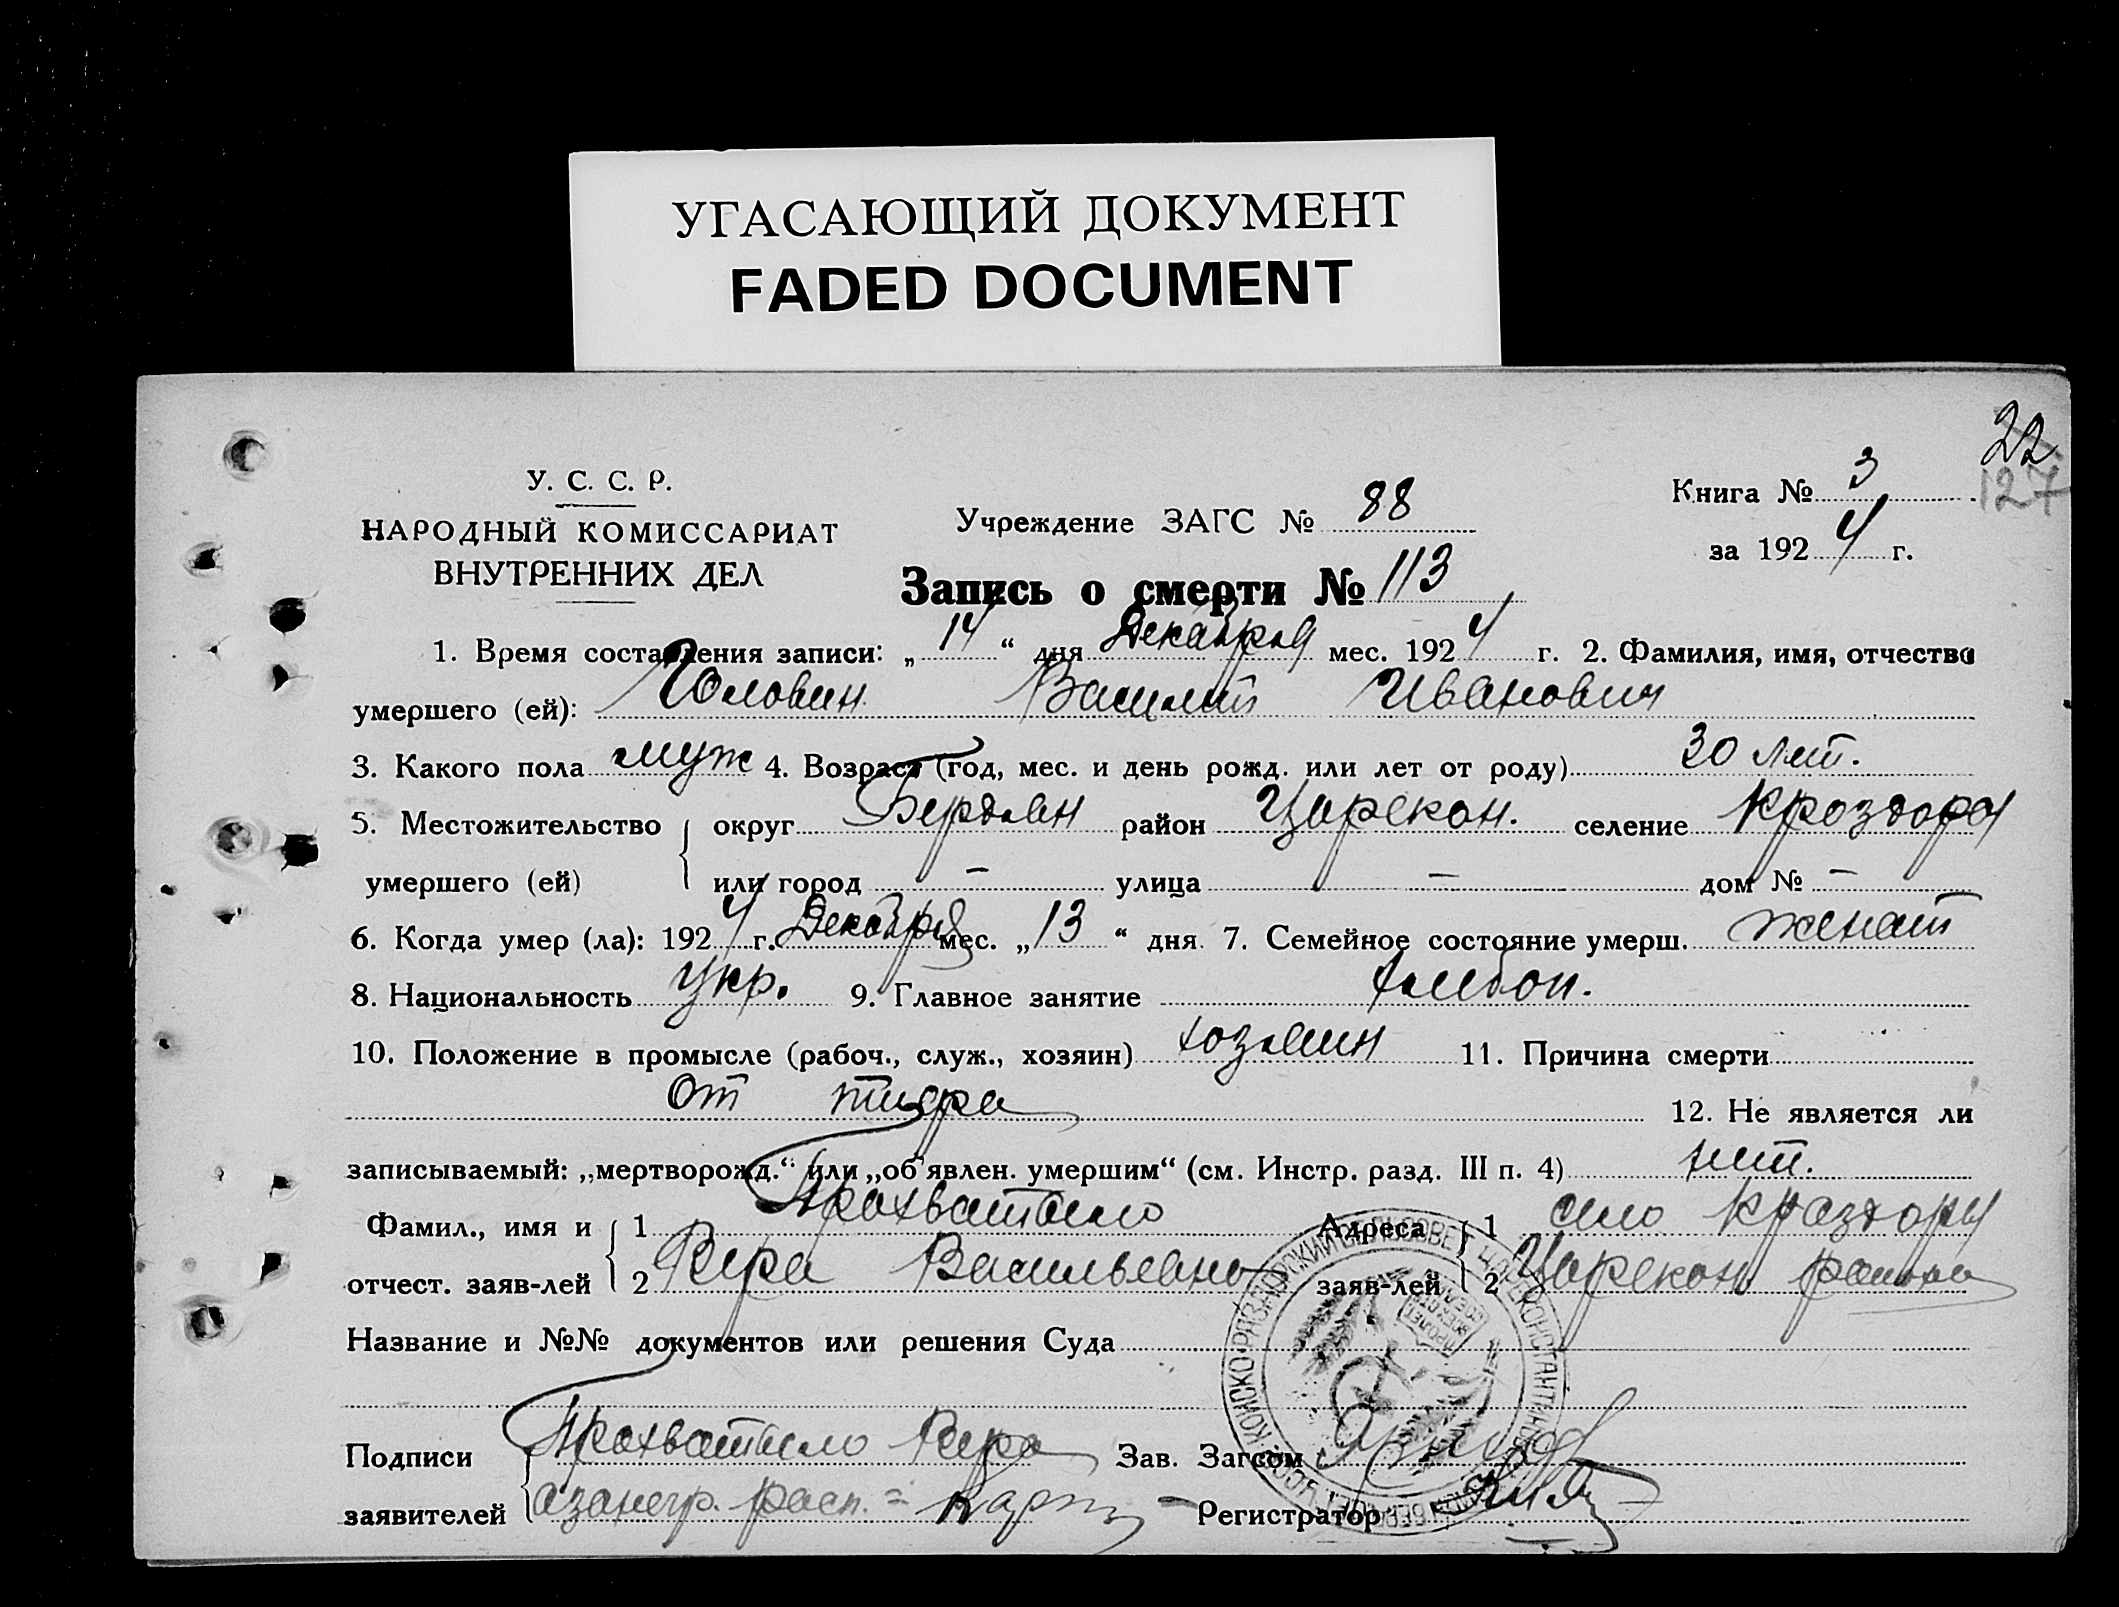 УГАСАЮЩИЙ ДОКУМЕНТ
FADED DOCUMENT
22
127
У. С. С. Р.
НАРОДНЫЙ КОМИССАРИАТ
ВНУТРЕННИХ ДЕЛ
Учреждение ЗАГС № 88
Книга № 3
за 1924 г.
Запись о смерти № 113
1. Время составления записи: „14“ дня Декабря мес. 1924 г. 2. Фамилия, имя, отчество
умершего (ей): Головин Василий Иванович
3. Какого пола муж 4. Возраст (год, мес. и день рожд. или лет от роду) 30 лет.
5. Местожительство округ Бердян район Царекон. селение Кроздоры
умершего (ей) или город — улица — дом № —
6. Когда умер (ла): 1924 г. Декабря мес. „13“ дня 7. Семейное состояние умерш. женат
8. Национальность укр. 9. Главное занятие хлебоп.
10. Положение в промысле (рабоч., служ., хозяин) хозяин 11. Причина смерти
От тифа 12. Не является ли
записываемый: „мертворожд.“ или „об'явлен. умершим“ (см. Инстр. разд. III п. 4) нет.
Фамил., имя и 1 Прохватило Адреса 1 село Краздоры
отчест. заяв-лей 2 Васильевна заяв-лей 2 Царекон района
Название и №№ документов или решения Суда
Подписи Прохватило Зав. Загсом
заявителей Регистратор